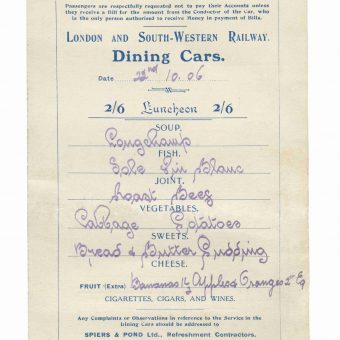 Passengers are respectfully requested not to pay their Accounts unless
they receive a Bill for the amount from the Conductor of the Car, who
is the only person authorised to receive Money in payment of Bills.
LONDON AND SOUTH-WESTERN RAILWAY.
Dining Cars.
Date 22nd 10. 06
2/6 Luncheon 2/6
SOUP.
Longchamp
FISH.
Sole Vin Blanc
JOINT.
Roast Beef
VEGETABLES.
Cabbage Potatoes
SWEETS.
Bread & Butter Pudding
CHEESE.
FRUIT (Extra) Bananas Apples & Oranges
CIGARETTES, CIGARS, AND WINES.
Any Complaints or Observations in reference to the Service in the
Dining Cars should be addressed to
SPIERS & POND Ltd., Refreshment Contractors.